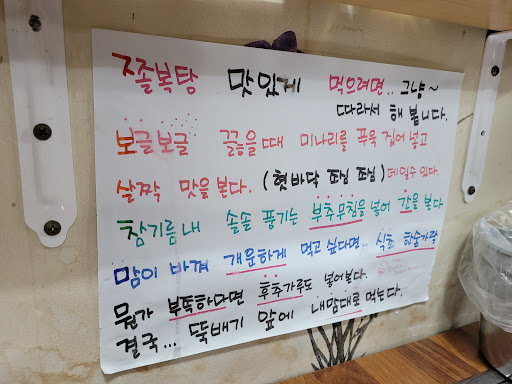 쫄복탕 맛있게 먹으려면.. 그냥~
따라서 해 봅니다.
보글보글 끓을때 미나리를 푸욱 집어넣고
살짝 맛을 본다. (혓바닥 조심 조심) 데일수 있다.
참기름내 솔솔 풍기는 부추무침을 넣어 간을 본다
맘이 바껴 개운하게 먹고 싶다면.. 식초 한숟가락
뭔가 부족하다면 후추가루도 넣어본다.
결국... 뚝배기 앞에 내맘대로 먹는다.